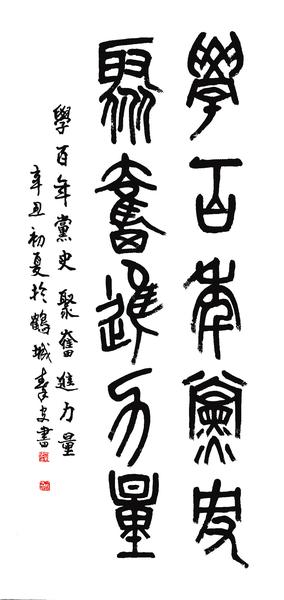 學百年黨史
聚奮進力量
學百年黨史聚奮進力量
辛丑初夏於鶴城春史書